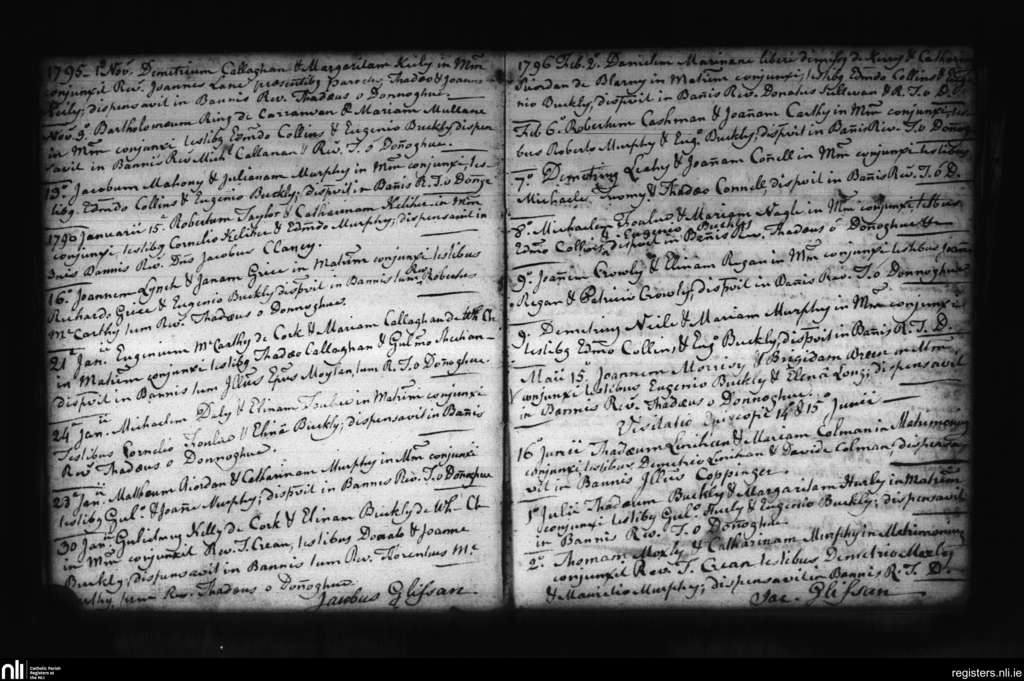 1795 - 1º Novr. Demetrium Callaghan & Margaritam Kiely in Mm
conjunxit Revd. Joannes Lane presentibq Parocho, Thadeo & Joanne
Kiely; dispensavit in Bannis Rev. Thadæus o Donnoghue.
Nov. 9º Bartholomæum Ring de Carranvan & Mariam Mullane
in Mm conjunxi testibq Edmdo Collins & Eugenio Buckly, dispen
savit in Bannis Rev. Michl Callanan & Revd. T. o Donoghue.
13º Jacobum Mahony & Julianam Murphy in Mm conjunxi, tes-
tibq Edmdo Collins & Eugenio Buckly; dispvit in Banis R. T. o Donoge
1796 Januarii 15. Robertum Taylor & Catharinam Kelihee in Mm
conjunxi, testibq Cornelio Kelihee & Edmdo Murphy; dispensavit in
Bannis Rev. Dnus Jacobus Clancy.
16º Joannem Lynch & Janam Grice in Matrim conjunxi testibus
Richardo Grice & Eugenio Buckly; dispvit in Bannis tum Revd Robertus
McCarthy tum Rev. Thadæus o Donnoghue.
21 Janii Eugenium McCarthy de Cork & Mariam Callaghan de Wh. Ch.
in Matrim conjunxi testibq Thadæo Callaghan & Gulmo Sheehan -
dispvit in Bannis tum Illus Epus Moylan, tum R. T. o Donoghue.
24 Janii Michaelem Daly & Elinam in Matrim conjunxi
testibus Cornelio & Elina Buckly; dispensavit in Banis
Revd Thadæus o Donnoghue.
23 Janii Matthæum Riordan & Catharinam Murphy in Mm conjunxi
testibq Gulo & Joane Murphy; dispvit in Bannis Rev. T. o Donoghue
30 Janii Gulielmum Kelly de Cork & Elinam Buckly de Wh. Ch
in Mm conjunxit Rev. T. Crean, testibus & Joanne
Buckly; dispensavit in Bannis tum Rev. Florentius Mc
Carthy tum Rev. Thadæus o Donoghue.
Jacobus Glissan
1796 Feb. 2. Danielem Marinane liberi de Kerry & Catharin
Riordan de Blarny in Matrim conjunxi; testibq Edmdo Collins & Euge
nio Buckly, dispvit in Banis Rev. Donatus Sullivan & R. T. o D.
Feb 6º Robertum Cashman & Joanam Carthy in Mm conjunxi; tes
bus Roberto Murphy & Eugo Buckly; dispvit in Banis Rev. T. o Donog
7º Demetriu Leahy & Joanam Conell in Mm conjunxi testibus
Michaele Twomy & Thadæo Connell dispvit in Banis Rev. T. o D.
8º Michaelem & Mariam Nagle in Mm conjunxi, testibus
Edmo Collins & Eugenio Buckly dispvit in Banis Rev. Thadæus o Donoghue
9º Joanem Crowly & Elinam Regan in Mm conjunxi testibus Joane
Regan & Patricio Crowly; dispvit in Banis Rev. T. o Donnoghue
9º Demetriu Neile & Mariam Murphy in Mm conjunxi
testibq Edmo Collins & Eugo Buckly, dispvit in Banis R. T. D.
Maii 15. Joannem Morrisy & Brigidam in Mm
conjunxi testibus Eugenio Buckly & Elena Long; dispensavit
in Bannis Rev. Thadæus o Donnoghue.
Visitatio Episcopi 14 & 15 Junii
16º Junii Thadæum Linihan & Mariam Colman in Matrimonium
conjunxi testibus Demetrio Linihan & Davide Colman; dispensa
vit in Bannis Illus Coppinger.
1º Julii Thadæum Buckly & Margaritam Hurly in Matrim
conjunxi testibq Gulo Hurly & Eugenio Buckly; dispensavit
in Bannis Rev. T. o Donoghue
2º Thomam Moxly & Catharinam Murphy in Matrimonium
conjunxit Rev. T. Crean testibus Demetrio Moxley
& Mauritio Murphy; dispensavit in Bannis R. T. D.
Jac. Glissan
nli
Catholic Parish
Registers at
the NLI
registers.nli.ie